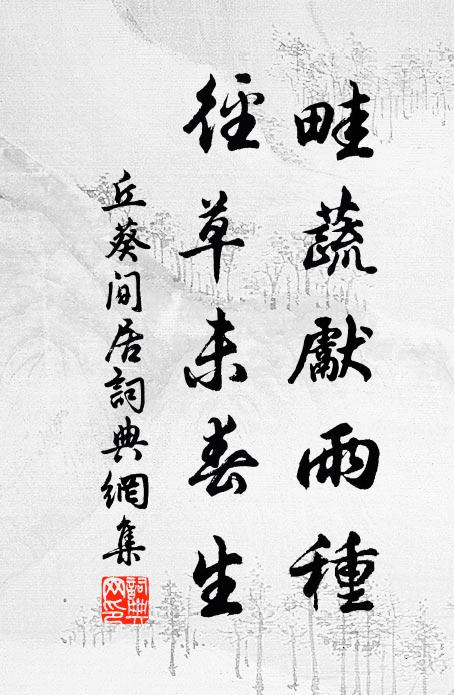 畦蔬獻雨種
徑草未春生
丘葵間居詞典網集
詞典网印